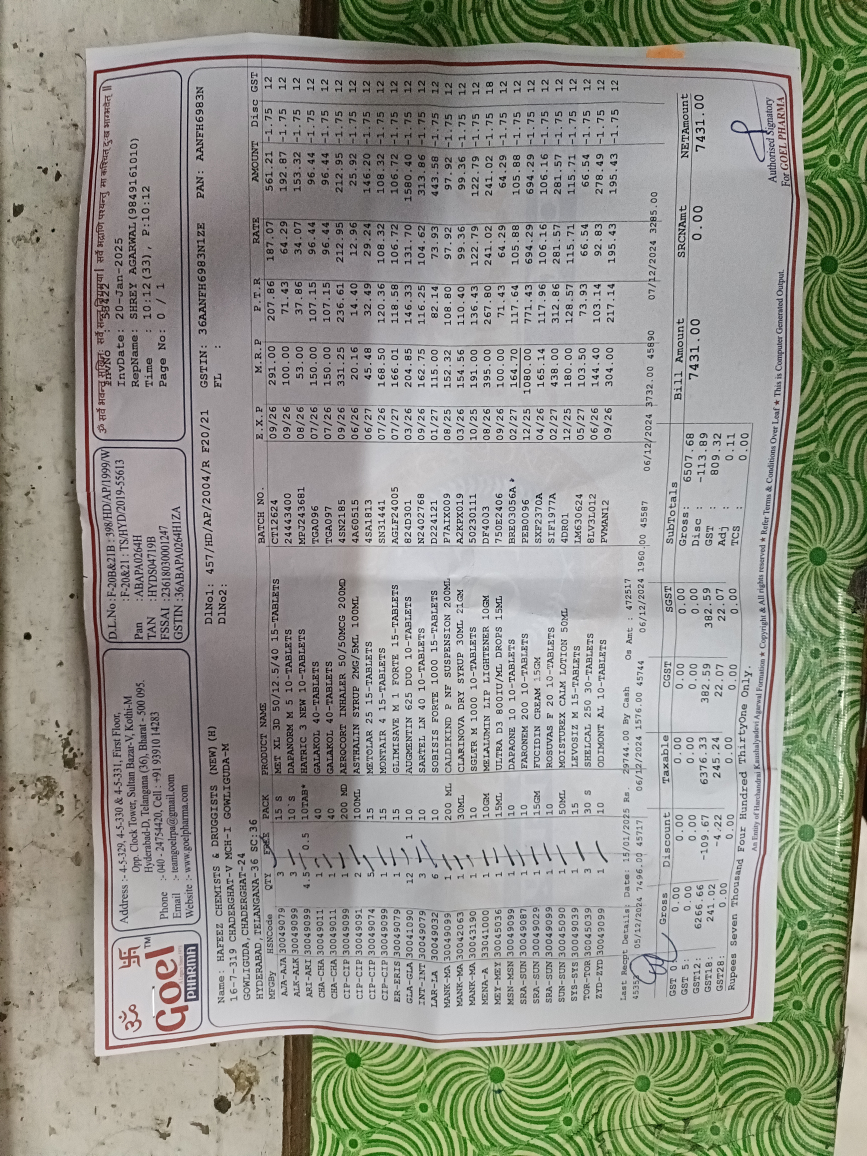 ॐ सर्वे भवन्तु सुखिनः सर्वे सन्तु निरामयाः। सर्वे भद्राणि पश्यन्तु मा कश्चित् दुःख भाग्भवेत् ॥
ॐ 卐
Goel™
PHARMA
Address :- 4-5-329, 4-5-330 & 4-5-331, First Floor,
Opp. Clock Tower, Sultan Bazar-V, Kothi-M
Hyderabad-D, Telangana (36), Bharat - 500 095.
Phone :- 040 - 24754420, Cell : +91 93910 14283
Email :- teamgoelrpa@gmail.com
Website :- www.goelpharma.com
D.L.No:F-20B&21B : 398/HD/AP/1999/W
F-20&21 : TS/HYD/2019-55613
Pan : ABAPA0264H
TAN : HYDS04719B
FSSAI : 23618030001247
GSTIN : 36ABAPA0264H1ZA
InvNo : 58422
InvDate: 20-Jan-2025
RepName: SHREY AGARWAL(9849161010)
Time : 10:12(33), P:10:12
Page No: 0 / 1
Name: HAFEEZ CHEMISTS & DRUGGISTS (NEW) (H)
16-7-319 CHADERGHAT-V MCH-I GOWLIGUDA-M
GOWLIGUDA, CHADERGHAT-24
HYDERABAD, TELANGANA-36 SC:36
DlNo1: 457/HD/AP/2004/R F20/21 GSTIN: 36AANFH6983N1ZE PAN: AANFH6983N
DlNo2: FL :
MFGBy HSNCode QTY FREE PACK PRODUCT NAME BATCH NO. E.X.P M.R.P P.T.R RATE AMOUNT Disc GST
AJA-AJA 30049079 3 15 S MET XL 3D 50/12.5/40 15-TABLETS CT12624 09/26 291.00 207.86 187.07 561.21 -1.75 12
ALK-ALK 30049099 3 10 S DAPANORM M 5 10-TABLETS 24443400 09/26 100.00 71.43 64.29 192.87 -1.75 12
ARI-ARI 30049099 4.5 0.5 10TAB* HATRIC 3 NEW 10-TABLETS MPJ243681 08/26 53.00 37.86 34.07 153.32 -1.75 12
CHA-CHA 30049011 1 40 GALAKOL 40-TABLETS TGA096 07/26 150.00 107.15 96.44 96.44 -1.75 12
CHA-CHA 30049011 1 40 GALAKOL 40-TABLETS TGA097 07/26 150.00 107.15 96.44 96.44 -1.75 12
CIP-CIP 30049099 1 200 MD AEROCORT INHALER 50/50MCG 200MD 4SN2185 09/26 331.25 236.61 212.95 212.95 -1.75 12
CIP-CIP 30049091 2 100ML ASTHALIN SYRUP 2MG/5ML 100ML 4AC0515 06/26 20.16 14.40 12.96 25.92 -1.75 12
CIP-CIP 30049074 5 15 METOLAR 25 15-TABLETS 4SA1813 06/27 45.48 32.49 29.24 146.20 -1.75 12
CIP-CIP 30049099 1 15 MONTAIR 4 15-TABLETS SN31441 07/26 168.50 120.36 108.32 108.32 -1.75 12
ER-ERIS 30049079 1 15 GLIMISAVE M 1 FORTE 15-TABLETS AGLF24005 07/27 166.01 118.58 106.72 106.72 -1.75 12
GLA-GLA 30041090 12 1 10 AUGMENTIN 625 DUO 10-TABLETS 824D301 03/26 204.85 146.33 131.70 1580.40 -1.75 12
INT-INT 30049079 3 10 SARTEL LN 40 10-TABLETS N2402768 09/26 162.75 116.25 104.62 313.86 -1.75 12
LAR-LA 30049032 6 15 SOBISIS FORTE 1000 15-TABLETS D224121 01/27 115.00 82.14 73.93 443.58 -1.75 12
MANK-MA 30049099 1 200 ML CALDIKIND NF SUSPENSION 200ML P7AIX009 08/25 152.32 108.80 97.92 97.92 -1.75 12
MANK-MA 30042063 1 30ML CLARINOVA DRY SYRUP 30ML 21GM A2KPX019 03/26 154.56 110.40 99.36 99.36 -1.75 12
MANK-MA 30043190 1 10 SGLTR M 1000 10-TABLETS 50230111 10/25 191.00 136.43 122.79 122.79 -1.75 12
MENA-A 33041000 1 10GM MELALUMIN LIP LIGHTENER 10GM DF4003 08/26 395.00 267.80 241.02 241.02 -1.75 18
MEY-MEY 30045036 1 15ML ULTRA D3 800IU/ML DROPS 15ML 750E2406 09/26 100.00 71.43 64.29 64.29 -1.75 12
MSN-MSN 30049099 1 10 DAPAONE 10 10-TABLETS BRE03056A* 02/27 164.70 117.64 105.88 105.88 -1.75 12
SRA-SUN 30049087 1 10 FARONEM 200 10-TABLETS PEB0096 12/25 1080.00 771.43 694.29 694.29 -1.75 12
SRA-SUN 30049029 1 15GM FUCIDIN CREAM 15GM SXF2370A 04/26 165.14 117.96 106.16 106.16 -1.75 12
SRA-SUN 30049099 1 10 ROSUVAS F 20 10-TABLETS SIF1977A 02/27 438.00 312.86 281.57 281.57 -1.75 12
SUN-SUN 30045090 1 50ML MOISTUREX CALM LOTION 50ML 4DR01 12/25 180.00 128.57 115.71 115.71 -1.75 12
SYS-SYS 30049039 1 15 LEVOSIZ M 15-TABLETS LM630624 05/27 103.50 73.93 66.54 66.54 -1.75 12
TOR-TOR 30045039 3 30 S SHELCAL 250 30-TABLETS 8LV3L012 06/26 144.40 103.14 92.83 278.49 -1.75 12
ZYD-ZYD 30049099 1 10 ODIMONT AL 10-TABLETS PVMAN12 09/26 304.00 217.14 195.43 195.43 -1.75 12
Last Recpt Details; Date: 15/01/2025 Rs. 29744.00 By Cash Os Amt : 472517
05/12/2024 7496.00 45717 06/12/2024 1576.00 45744 06/12/2024 1960.00 45587 06/12/2024 3732.00 45890 07/12/2024 3285.00
Gross Discount Taxable CGST SGST SubTotals Bill Amount SRCNAmt NETAmount
GST 0: 0.00 0.00 0.00 0.00 0.00 Gross: 6507.68 7431.00 0.00 7431.00
GST 5: 0.00 0.00 0.00 0.00 0.00 Disc : -113.89
GST12: 6266.66 -109.67 6376.33 382.59 382.59 GST : 809.32
GST18: 241.02 -4.22 245.24 22.07 22.07 Adj : 0.11
GST28: 0.00 0.00 0.00 0.00 0.00 TCS : 0.00
Rupees Seven Thousand Four Hundred ThirtyOne Only.
Authorised Signatory
For GOEL PHARMA
An Entity of Harchandrai Kanthal Jadavi Agarwal Formation ★ Copyright & All rights reserved ★ Refer Terms & Conditions Over Leaf ★ This is Computer Generated Output.